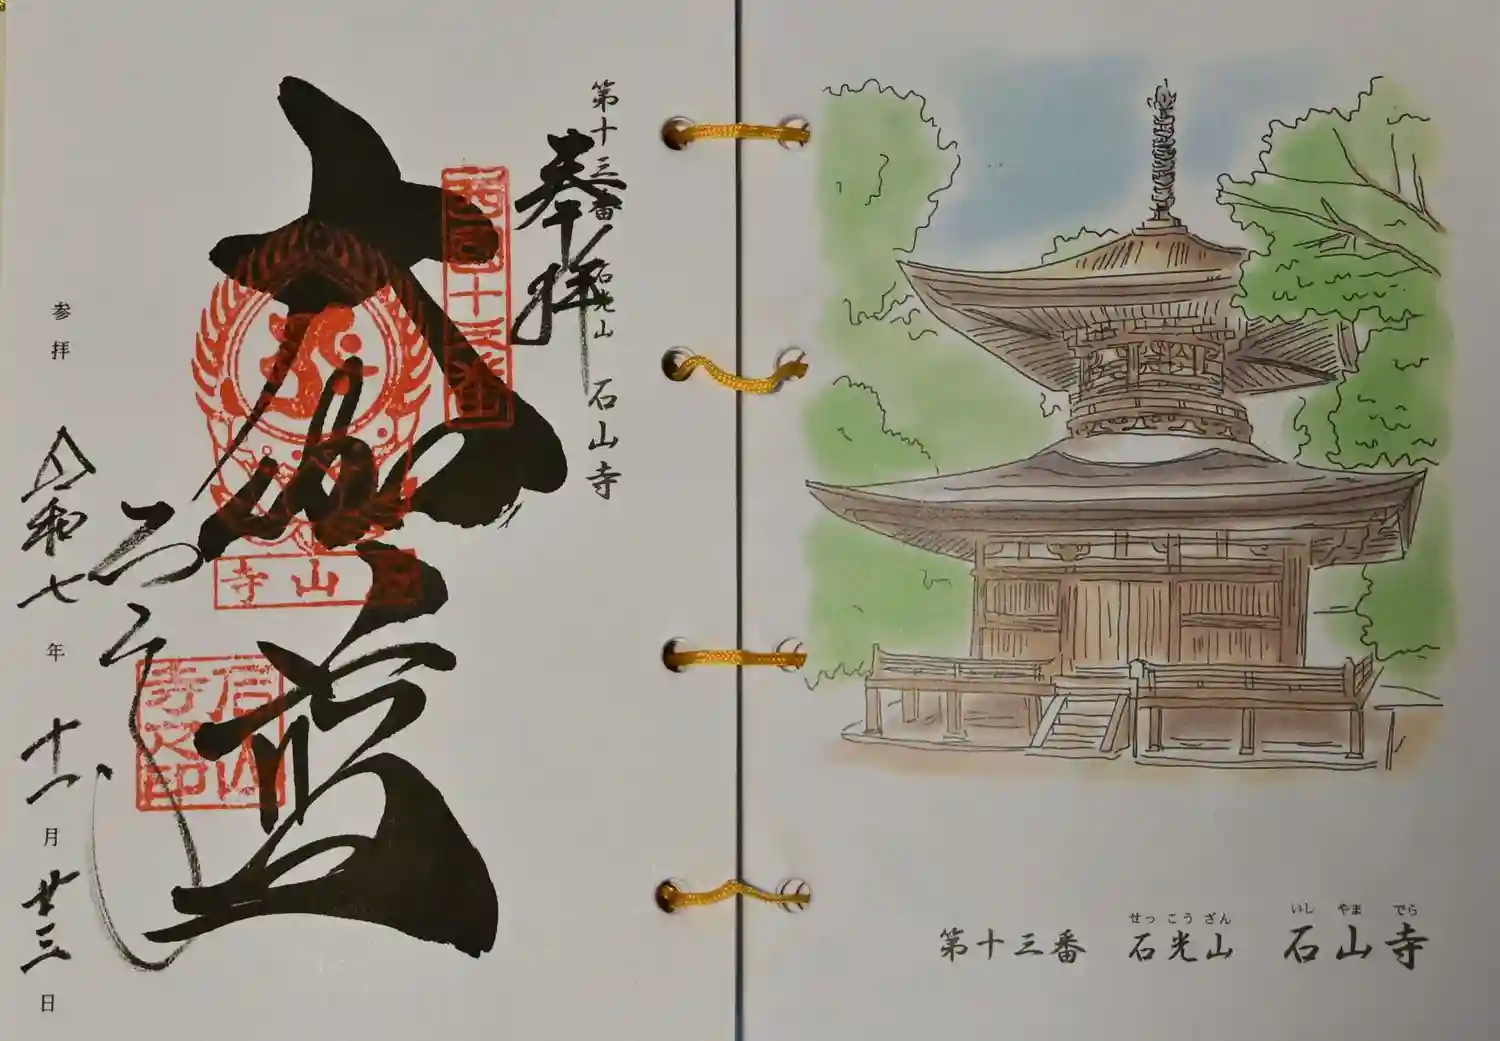 第十三番 石光山 石山寺
奉拝
西国十三番
大伽藍
石山寺
石山寺之印
石山寺
参拝 令和七年 十一月 廿三日
第十三番 石光山 石山寺
せっ こう ざん いし やま でら